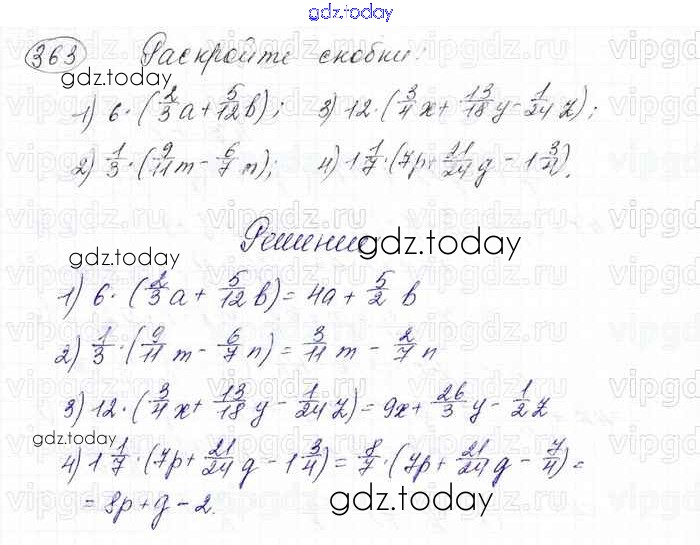 gdz.today
363 Раскройте скобки:
gdz.today
1) 6·(2/3a + 5/12b); 3) 12·(3/4x + 13/18y − 1/24z);
2) 1/3·(9/11m − 6/7n); 4) 1 1/7·(7p + 21/24q − 1 3/4).
Решение
gdz.today
gdz.today
1) 6·(2/3a + 5/12b) = 4a + 5/2 b
2) 1/3·(9/11m − 6/7n) = 3/11m − 2/7n
3) 12·(3/4x + 13/18y − 1/24z) = 9x + 26/3y − 1/2z
gdz.today
4) 1 1/7·(7p + 21/24q − 1 3/4) = 8/7·(7p + 21/24q − 7/4) =
= 8p + q − 2.
gdz.today
gdz.today